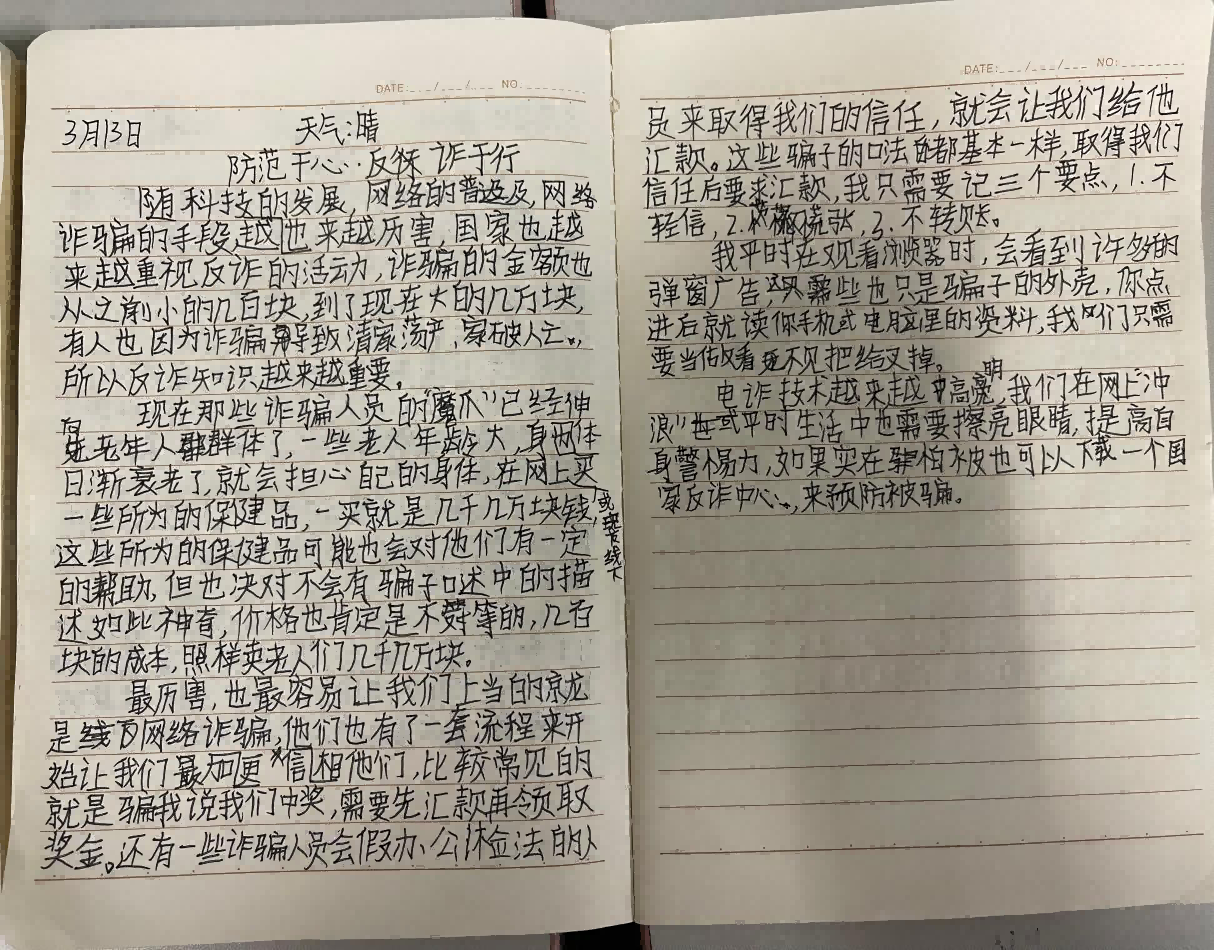 DATE:___/___/___ NO.
3月13日 天气:晴
防范于心··反诈于行
随着科技的发展，网络的普及，网络
诈骗的手段越也来越历害，国家也越
来越重视反诈的活动，诈骗的金额也
从之前小的几百块，到了现在大的几万块，
有人也因为诈骗导致清家荡产，家破人亡。，
所以反诈知识越来越重要。
现在那些诈骗人员的“魔爪”已经伸
向老年人群体了，一些老人年龄大，身体
日渐衰老了，就会担心自己的身体，在网上买或线下
一些所为的保健品，一买就是几千几万块钱，
这些所为的保健品可能也会对他们有一定
的帮助，但也决对不会有骗子口述中的描
述如此神奇，价格也肯定是不等的，几百
块的成本，照样卖老人们几千几万块。
最历害，也最容易让我们上当的
是网络诈骗，他们也有了一套流程来开
始让我们更信相他们，比较常见的
就是骗我说我们中奖，需要先汇款再领取
奖金。还有一些诈骗人员会假办公检法的人
DATE:___/___/___ NO:
员来取得我们的信任，就会让我们给他
汇款。这些骗子的口法都基本一样，取得我们
信任后要求汇款，我只需要记三个要点，1.不
轻信，2.慌张，3.不转账。
我平时在观看浏览器时，会看到许多的
弹窗广告，那些也只是骗子的外壳，你点
进后就读你手机或电脑里的资料，我们只需
要当做看不见把给叉掉。
电诈技术越来越高明，我们在网上“冲
浪”或平时生活中也需要擦亮眼睛，提高自
身警惕力，如果实在怕被也可以下载一个国
家反诈中心，来预防被骗。